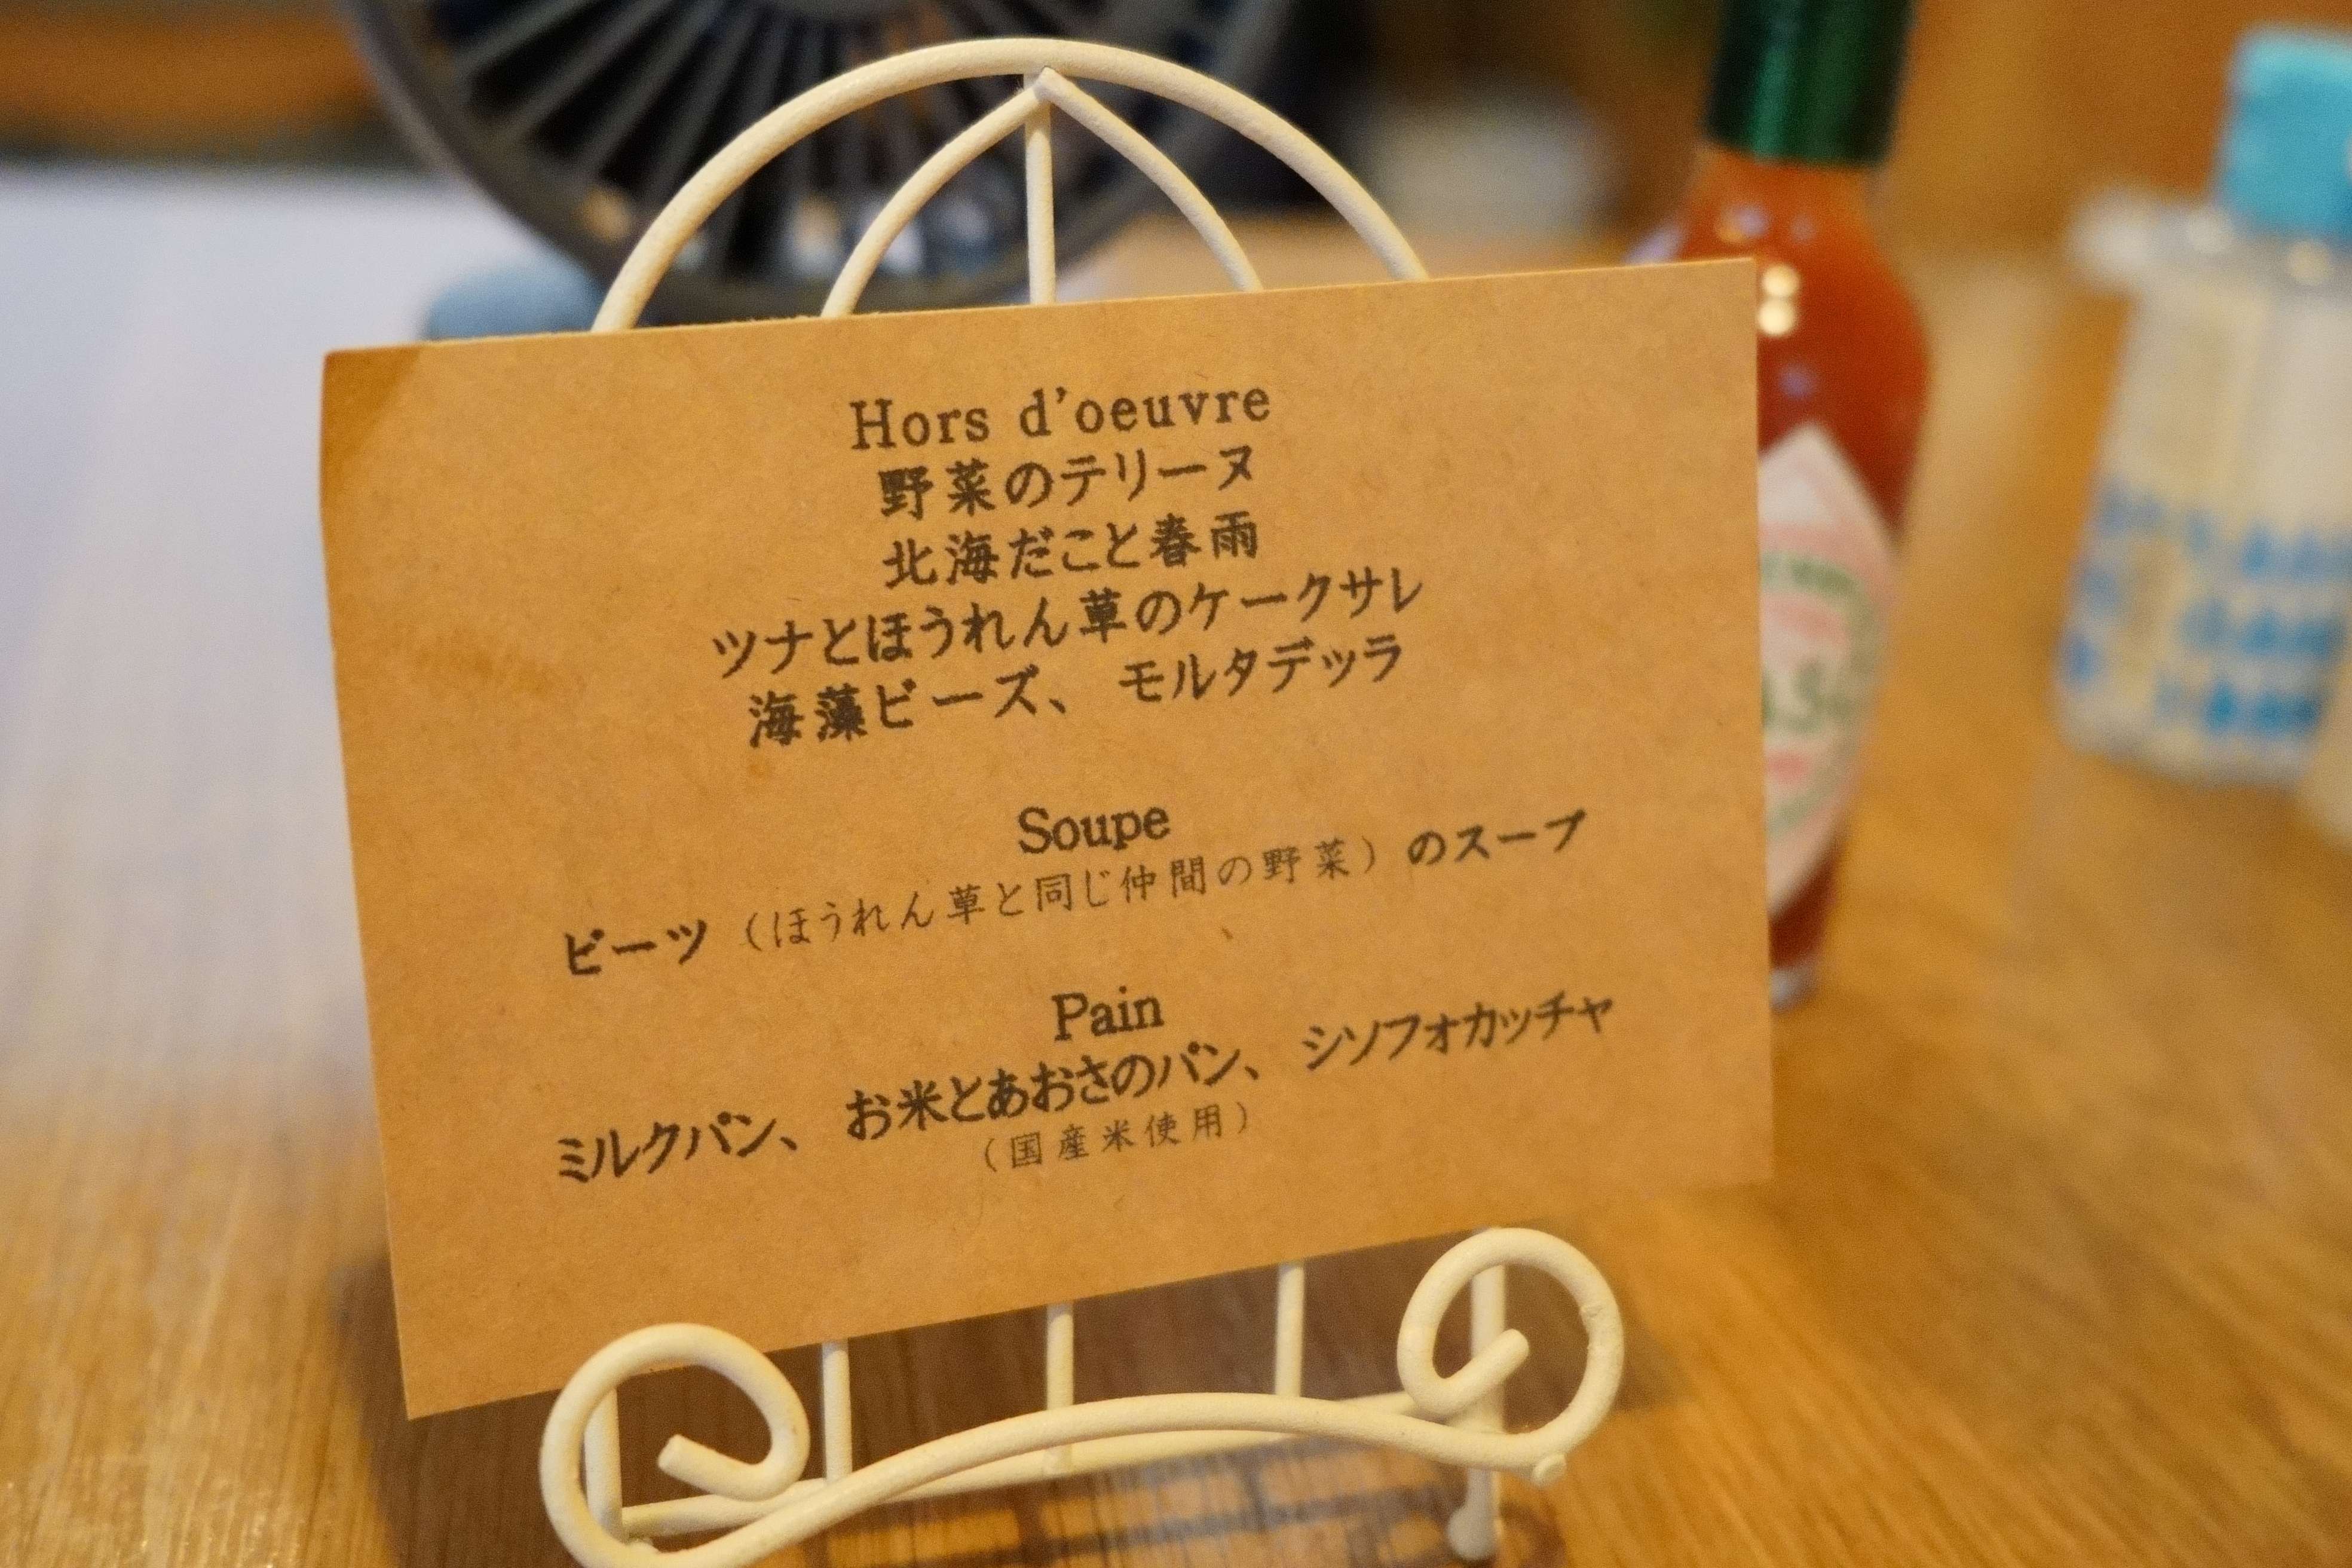 Hors d'oeuvre
野菜のテリーヌ
北海だこと春雨
ツナとほうれん草のケークサレ
海藻ビーズ、モルタデッラ
Soupe
ビーツ（ほうれん草と同じ仲間の野菜）のスープ
Pain
ミルクパン、お米とあおさのパン、シソフォカッチャ
（国産米使用）